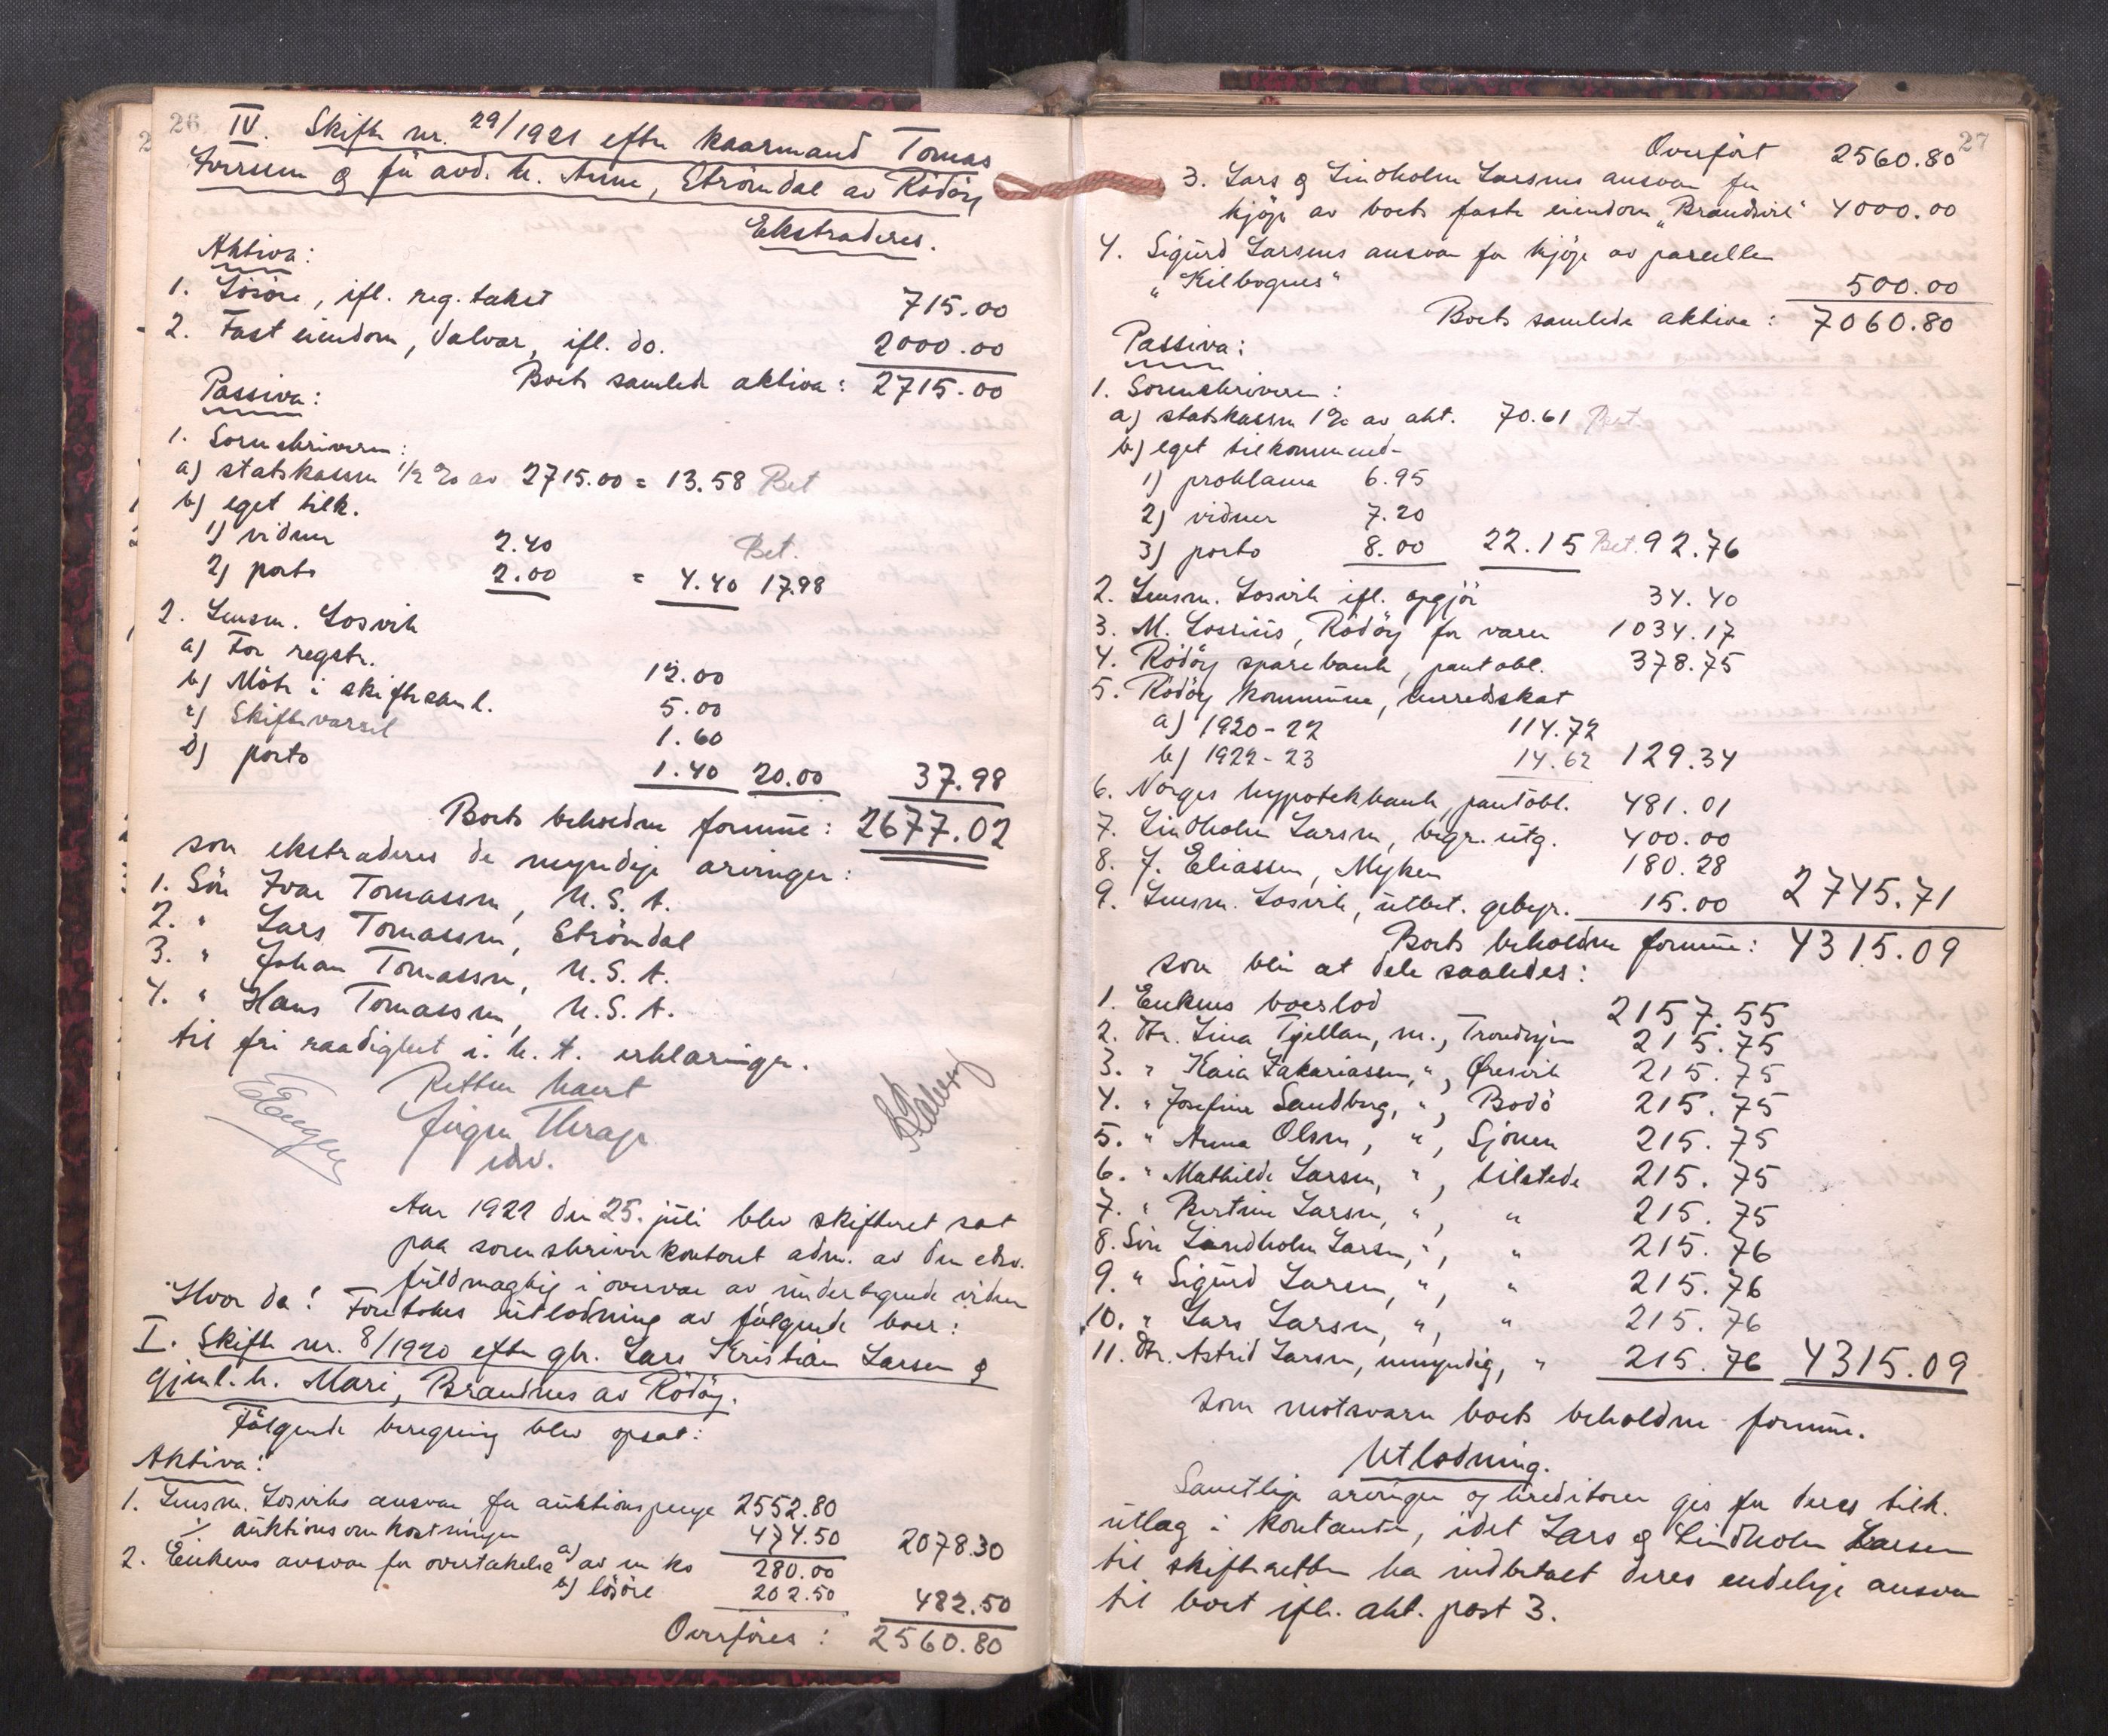 26
IV. Skifte nr. 29/1921 efter kaarmand Tomas
Iversen & før avd. h. Anne, Strömdal av Rödöy
Ekstraderes.
Aktiva:
1. Lösöre, ifl. reg. takst 715.00
2. Fast eiendom, Valvar, ifl. do. 2000.00
Boets samlede aktiva: 2715.00
Passiva:
1. Sorenskriveren:
a) statskassen 1/2 % av 2715.00 = 13.58 Bet
b) eget tilk.
1) vidner 2.40 Bet.
2) porto 2.00 = 4.40 17.98
2. Lensm. Losvik
a) For regstr. 12.00
b) Möte i skiftesaml. 5.00
c) Skiftevarsel 1.60
d) porto 1.40 20.00 37.98
Boets beholdne formue: 2677.02
som ekstraderes de myndige arvinger:
1. Sön Ivar Tomassen, U.S.A.
2. " Lars Tomassen, Strömdal
3. " Johan Tomassen, U.S.A.
4. " Hans Tomassen, U.S.A.
til fri raadighet i. h. t. erklæringer.
Retten hævet
Jürgen Thrap
edsv.
Aar 1922 den 25. juli blev skifteret sat
paa sorenskriverkontoret adm. av den edsv.
fuldmægtig i overvær av undertegnede vidner
Hvor da: Foretokes utlodning av fölgende boer:
I. Skifte nr. 8/1920 efter gbr. Lars Kristian Larsen &
gjenl. h. Mari, Brandsnes av Rödöy.
Fölgende beregning blev opsat:
Aktiva:
1. Lensm. Losviks ansvar for auktionspenge 2552.80
÷ auktionsomkostninger 474.50 2078.30
2. Enkens ansvar for overtakelse a) av en ko 280.00
b) lösöre 202.50 482.50
Overföres: 2560.80
27
Overfört 2560.80
3. Lars & Lindholm Larsens ansvar for
kjöp av boets faste eiendom "Brandsvik" 4000.00
4. Sigurd Larsens ansvar for kjöp av parsellen
"Kilbognes" 500.00
Boets samlede aktiva: 7060.80
Passiva:
1. Sorenskriveren:
a) statskassen 1% av akt. 70.61 Bet.
b) eget tilkommende
1) proklama 6.95
2) vidner 7.20
3) porto 8.00 22.15 Bet. 92.76
2. Lensm. Losvik ifl. opgjör 34.40
3. M. Lorniis, Rödöy for varer 1034.17
4. Rödöy sparebank, pantobl. 378.75
5. Rödöy kommune, herredskat
a) 1920-22 114.72
b) 1922-23 14.62 129.34
6. Norges hypotekbank, pantobl. 481.01
7. Lindholm Larsen, begr. utg. 400.00
8. J. Eliassen, Myken 180.28
9. Lensm. Losvik, utbet. gebyr. 15.00 2745.71
Boets beholdne formue: 4315.09
som blir at dele saaledes:
1. Enkens boeslod 2157.55
2. Dtr. Lina Tjellan, m., Trondhjem 215.75
3. " Kaia Zakariassen, ", Øresvik 215.75
4. " Josefine Sandberg, ", Bodö 215.75
5. " Anna Olsen, ", Sjonen 215.75
6. " Mathilde Larsen, ", tilstede 215.75
7. " Bertine Larsen, ", " 215.75
8. Sön Lindholm Larsen, ", " 215.76
9. " Sigurd Larsen, ", " 215.76
10. " Lars Larsen, ", " 215.76
11. Dtr. Astrid Larsen, umyndig, " 215.76 4315.09
som motsvarer boets beholdne formue.
Utlodning.
Samtlige arvinger og kreditorer gis for deres tilk.
utlæg i kontanter, idet Lars & Lindholm Larsen
til skifteretten har indbetalt deres endelige ansvar
til boet ifl. akt. post 3.